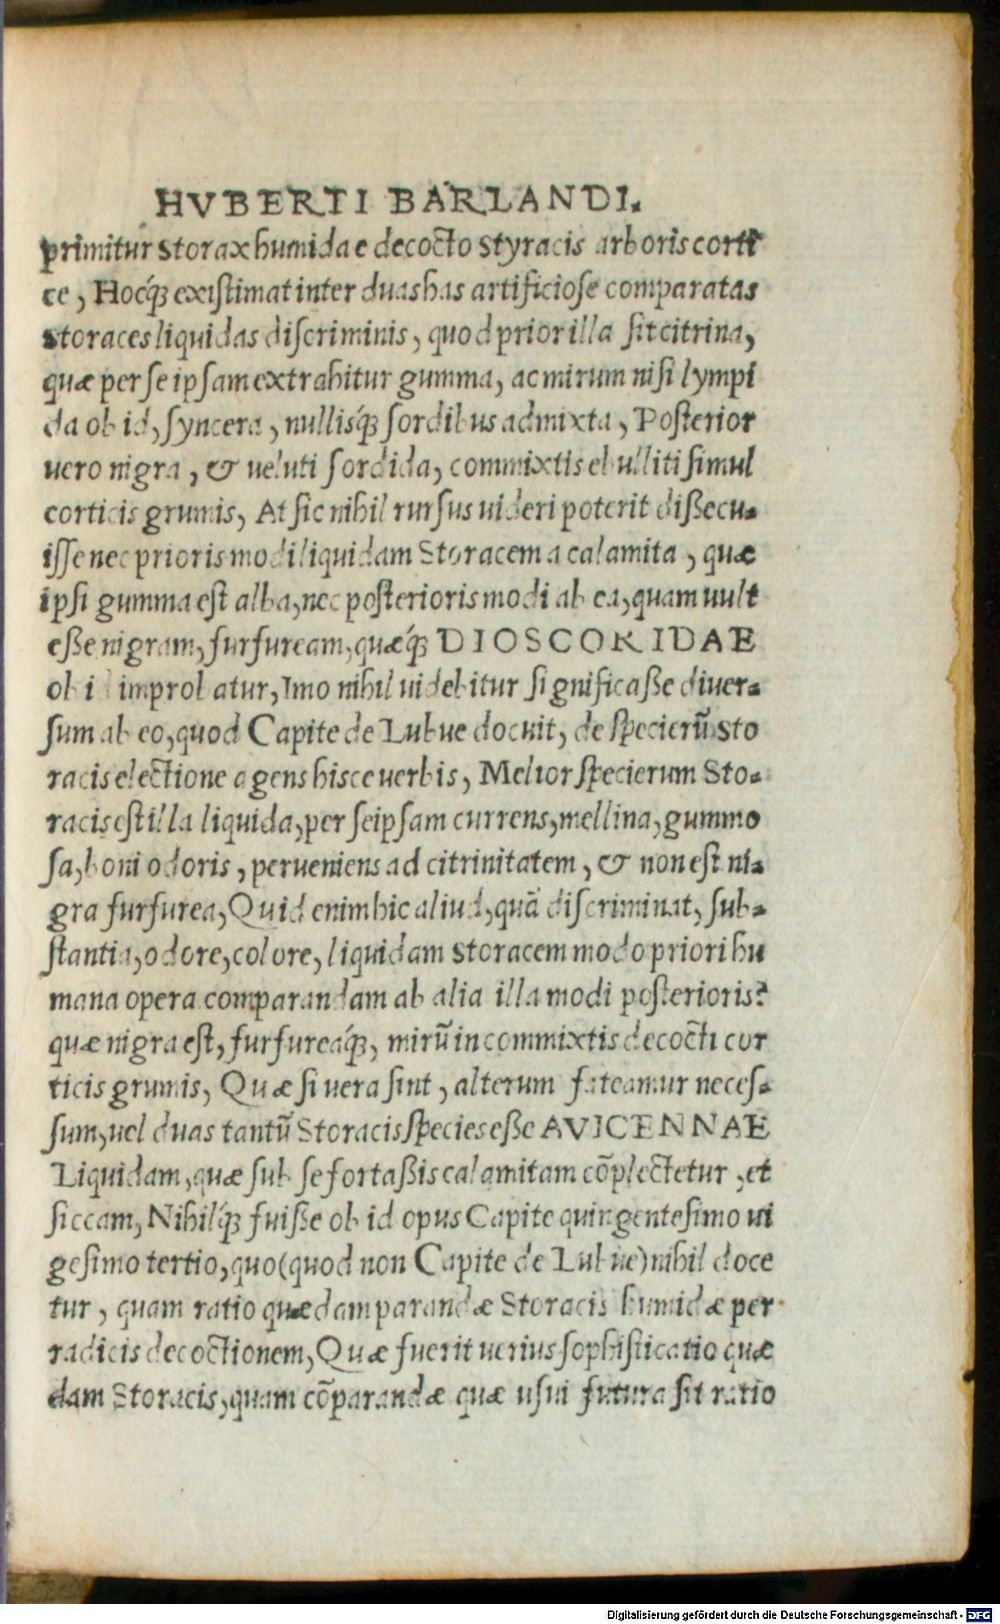 HVBERTI BARLANDI.
primitur Storax humida e decocto Styracis arboris corti
ce, Hocq́; existimat inter duas has artificiose comparatas
storaces liquidas discriminis, quod prior illa sit citrina,
quæ per se ipsam extrahitur gumma, ac mirum nisi lympi
da ob id, syncera, nullisq́; sordibus admixta, Posterior
vero nigra, & veluti sordida, commixtis ebulliti simul
corticis grumis, At sic nihil rursus uideri poterit dißecu-
isse nec prioris modi liquidam Storacem a calamita, quæ
ipsi gumma est alba, nec posterioris modi ab ea, quam uult
eße nigram, furfuream, quæq́; DIOSCORIDAE
ob i improbatur, Imo nihil uidebitur significaße diuer-
sum ab eo, quod Capite de Lubue docuit, de specierũ Sto
racis electione agens hisce uerbis, Melior specierum Sto-
racis est illa liquida, per seipsam currens, mellina, gummo
sa, boni odoris, perueniens ad citrinitatem, & non est ni-
gra furfurea, Quid enim hic aliud, quã discriminat, sub-
stantia, odore, colore, liquidam Storacem modo priori hu
mana opera comparandam ab alia illa modi posterioris?
quæ nigra est, furfureaq́;, mirũ in commixtis decocti cor
ticis grumis, Quæ si vera sint, alterum fateamur neces-
sum, uel duas tantũ Storacis species eße AVICENNAE
Liquidam, quæ sub se fortaßis calamitam cõplectetur, et
siccam, Nihilq́; fuiße ob id opus Capite quingentesimo ui
gesimo tertio, quo (quod non Capite de Lubue) nihil doce
tur, quam ratio quædam parandæ Storacis humidæ per
radicis decoctionem, Quæ fuerit uerius sophisticatio quæ
dam Storacis, quam cõparandæ quæ usui futura sit ratio
Digitalisierung gefördert durch die Deutsche Forschungsgemeinschaft - DFG